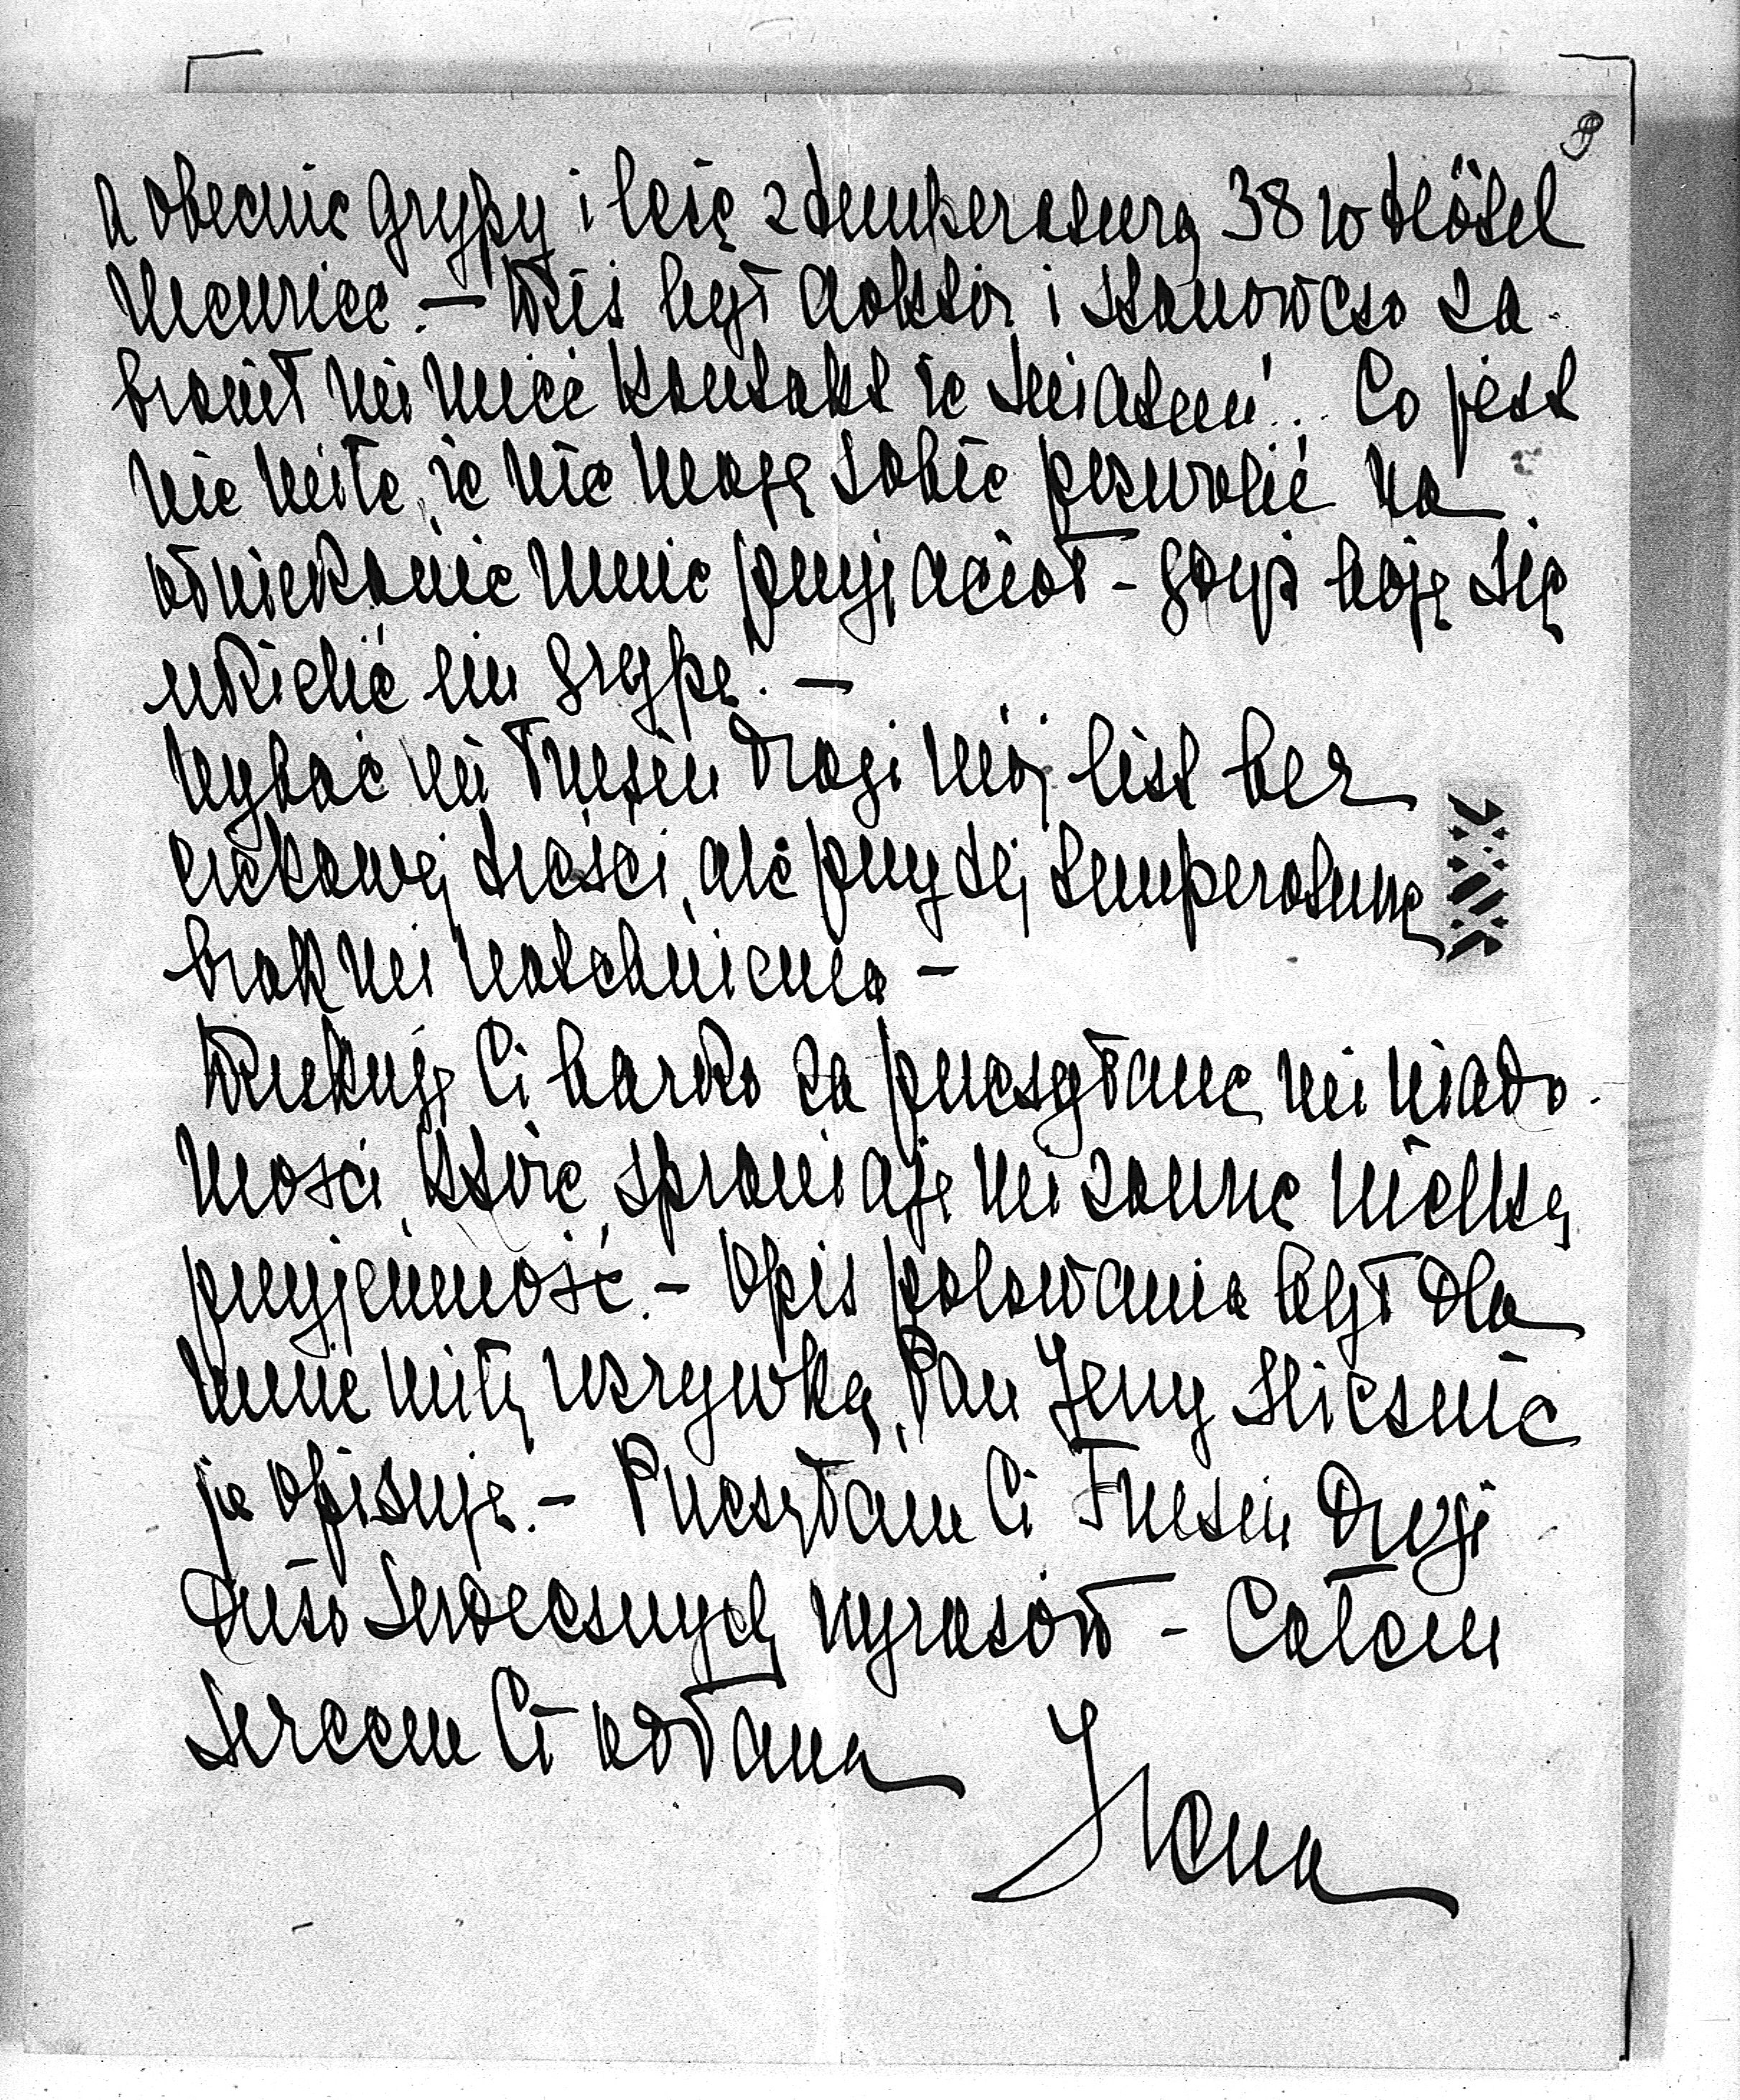 3
a obecnie grypy i leżę z temperaturą 38 w Hôtel
Meurice. — Dziś był doktór i stanowczo za-
bronił mi mieć kontakt ze światem! Co jest
nie miłe, że nie mogę sobie pozwolić na
odwiedzanie mnie przyjaciół - gdyż boję się
udzielić im grypę. —
Wybacz mi drogi mój list bez
ciekawej treści, ale przy tej temperaturze
brak mi natchnienia —
Dziękuję Ci bardzo za przesyłane mi wiado-
mości, które sprawiają mi zawsze wielką
przyjemność. — Opis polowania był dla
mnie miłą rozrywką, Pan Jerzy ślicznie
je opisuje. — Przesyłam Ci drogi
dużo serdecznych wyrazów — Całem
sercem Ci oddana
Ilona